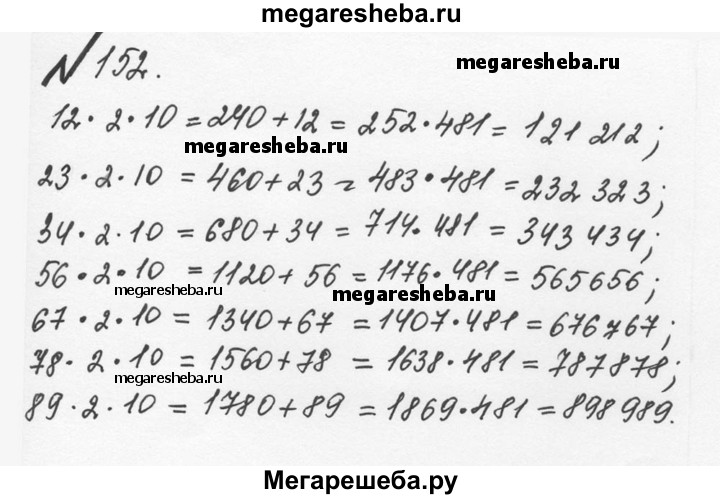 megaresheba.ru
№ 152.
megaresheba.ru
12 · 2 · 10 = 240 + 12 = 252 · 481 = 121 212;
megaresheba.ru
23 · 2 · 10 = 460 + 23 = 483 · 481 = 232 323;
34 · 2 · 10 = 680 + 34 = 714 · 481 = 343 434;
56 · 2 · 10 = 1120 + 56 = 1176 · 481 = 565656;
megaresheba.ru megaresheba.ru
67 · 2 · 10 = 1340 + 67 = 1407 · 481 = 676767;
78 · 2 · 10 = 1560 + 78 = 1638 · 481 = 787878;
megaresheba.ru
89 · 2 · 10 = 1780 + 89 = 1869 · 481 = 898 989.
Мегарешеба.ру